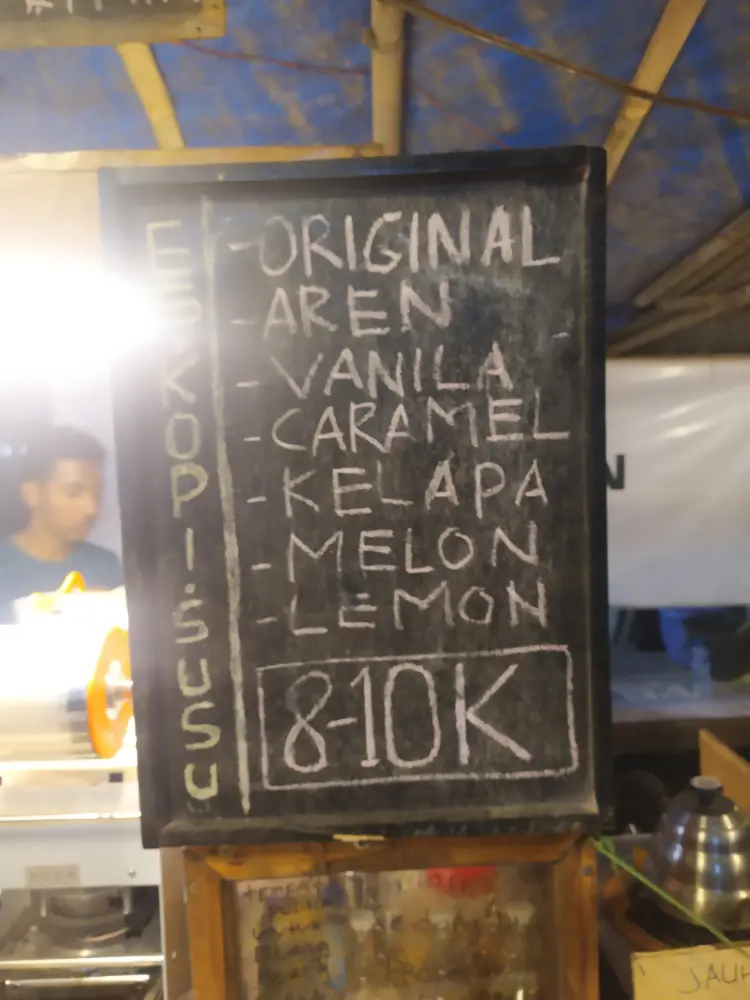 ES KOPI SUSU
-ORIGINAL
-AREN
-VANILA
-CARAMEL
-KELAPA
-MELON
-LEMON
8-10K
N
JAUH